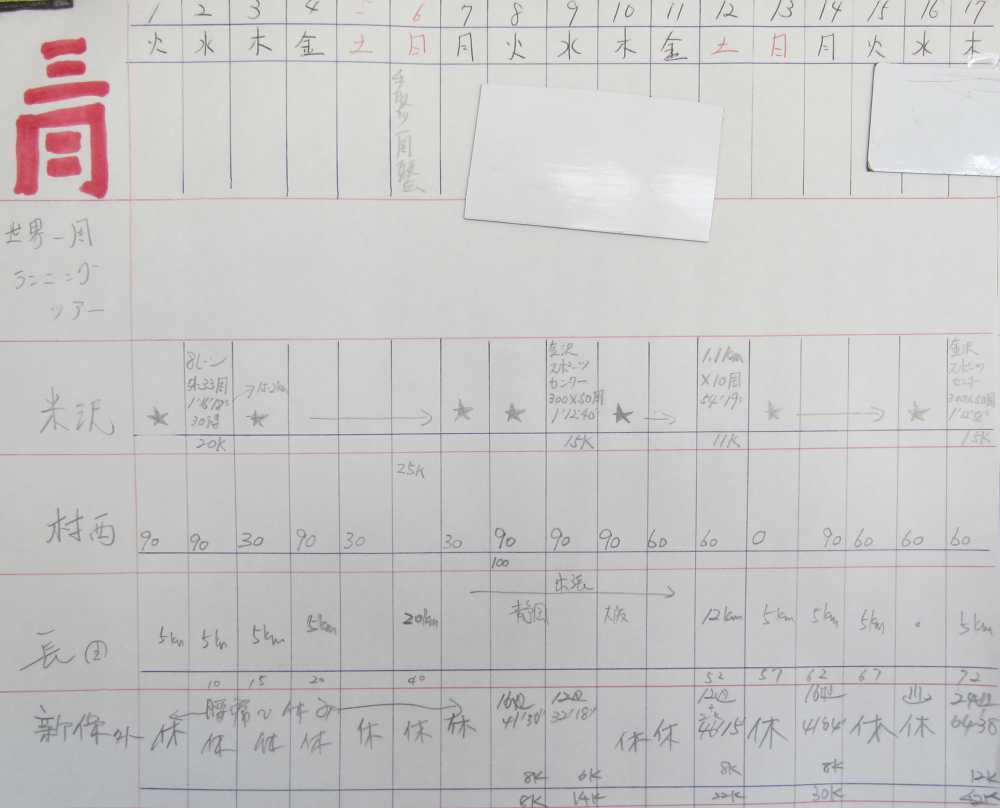 1 2 3 4 6 7 8 9 10 11 12 13 14 15 16 17
火 水 木 金 土 日 月 火 水 木 金 土 日 月 火 水 木
世界一周
ランニング
ツアー
米沢
★
8レーン
20K
→15.2km
★
★
★
金沢
スポーツ
センター
300×50周
1°12'40"
15K
★
1.1km
×10周
54'19"
11K
★
★
金沢
スポーツ
センター
300×50周
15K
村西
25K
90 90 30 90 30 30 90 90 90 60 60 0 90 60 60 60
100
長田
出張
静岡 大阪
5km 5km 5km 5km 20km 12km 5km 5km 5km 5km
10 15 20 40 52 57 62 67 72
新保外
腰痛
休 休 休 休 休 休 休
16周
41'30"
8K
8K
12周
32'18"
6K
14K
休 休
8K
22K
休
8K
30K
休 休
12K
42K